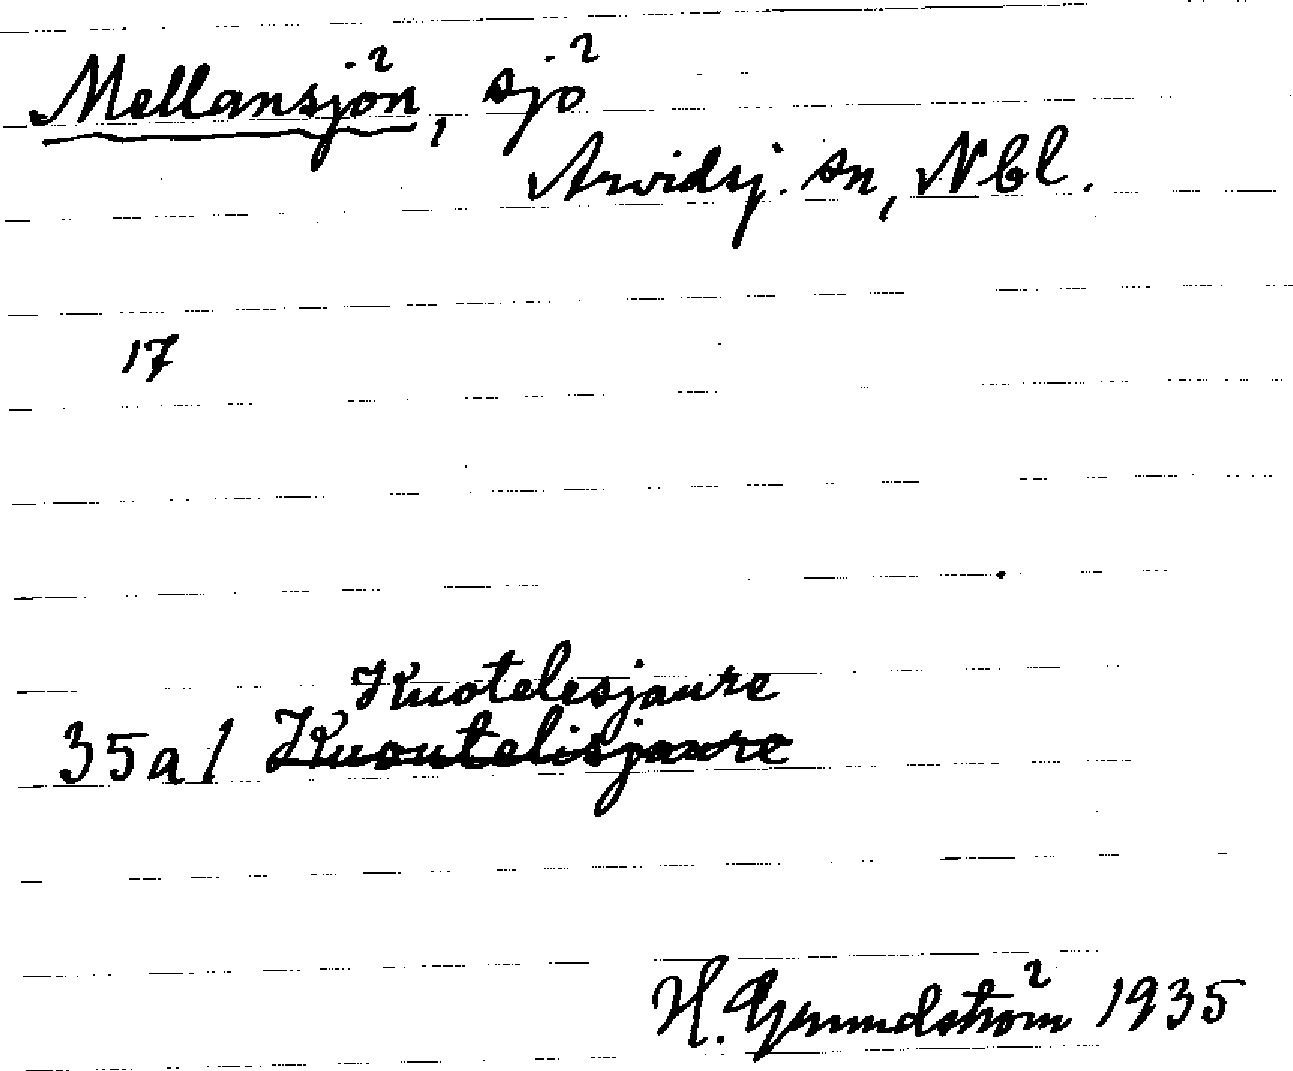 Mellansjön, sjö
Arvidsj. sn, Nbl.
17
Kuotelesjaure
35a/ Kuoutelisjaure
H. Grundström 1935